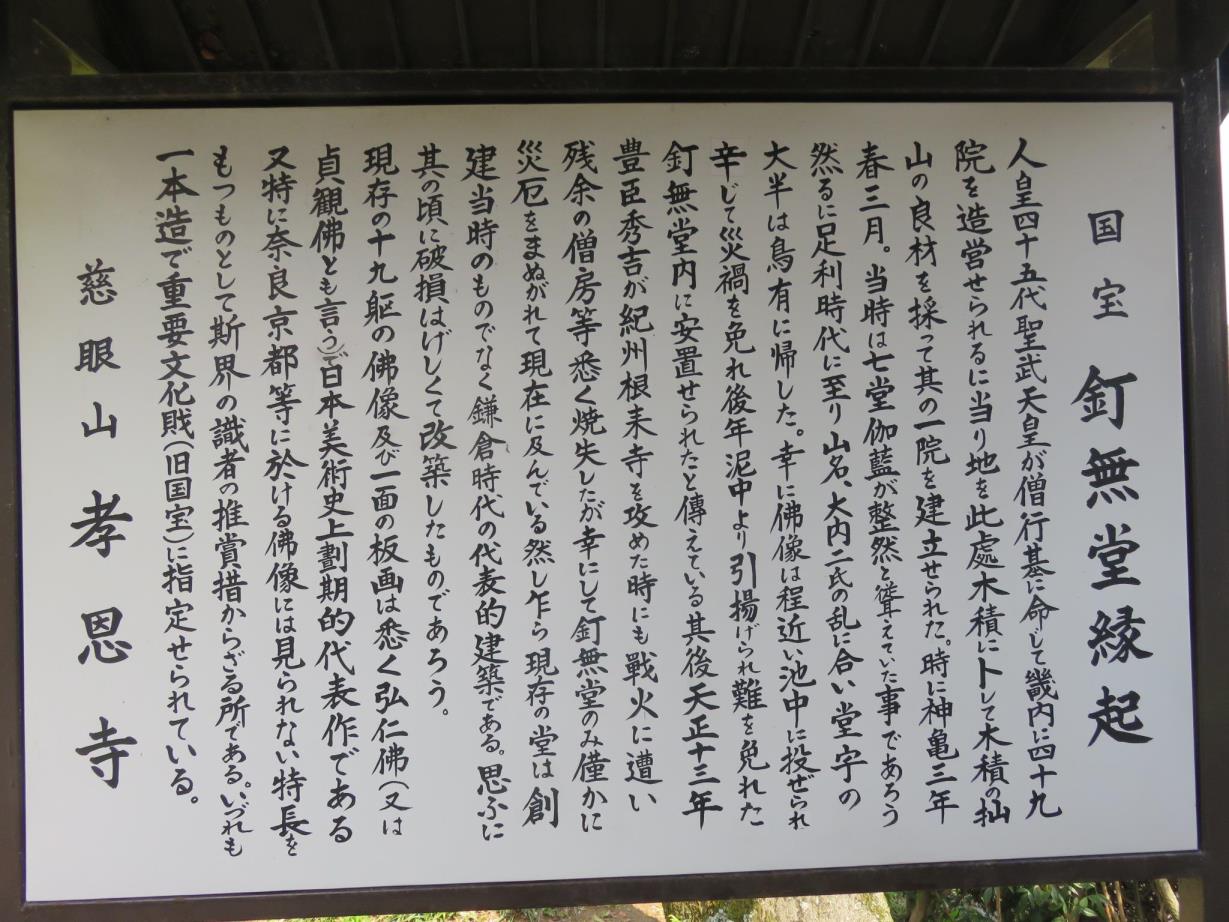 国宝 釘無堂縁起
人皇四十五代聖武天皇が僧行基に命して畿内に四十九
院を造営せられるに当り地を此處木積にトして木積の杣
山の良材を採って其の一院を建立せられた。時に神亀三年
春三月。当時は七堂伽藍が整然と聳えていた事であろう
然るに足利時代に至り山名、大内二氏の乱に合い堂字の
大半は鳥有に帰した。幸に佛像は程近い池中に投ぜられ
辛じて災禍を免れ後年泥中より引揚げられ難を免れた
釘無堂内に安置せられたと傳えている其後天正十三年
豊臣秀吉が紀州根来寺を攻めた時にも戰火に遭い
残余の僧房等悉く焼失したが幸にして釘無堂のみ僅かに
災厄をまぬがれて現在に及んでいる然し乍ら現存の堂は創
建当時のものでなく鎌倉時代の代表的建築である。思ふに
其の頃に破損はげしくて改築したものであろう。
現存の十九躯の佛像及び一面の板画は悉く弘仁佛(又は
貞観佛とも言う)で日本美術史上劃期的代表作である
又特に奈良京都等に於ける佛像には見られない特長を
もつものとして斯界の識者の推賞措からざる所である。いづれも
一本造で重要文化財(旧国宝)に指定せられている。
慈眼山孝恩寺